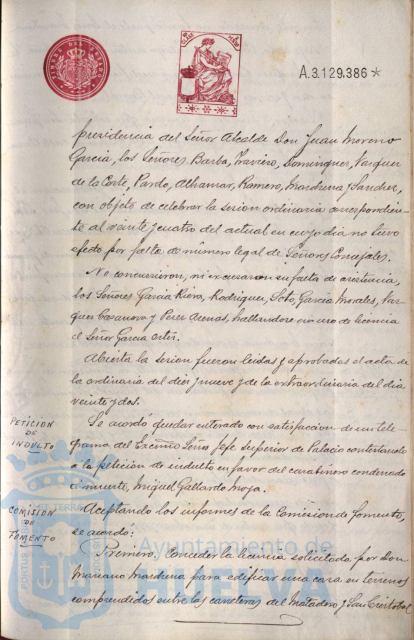 A.3.129.386*
presidencia del Señor Alcalde Don Juan Moreno
Garcia, los Señores, Barba, Traviero, Dominguez, Vazquez
de la Corte, Pardo, Alhamar, Romero, Marchena y Sanchez,
con objeto de celebrar la sesion ordinaria correspondien-
te al veinte y cuatro del actual en cuyo dia no tuvo
efecto por falta de número legal de Señores Concejales.
No concurrieron, ni excusaron su falta de asistencia,
los Señores Garcia Riera, Rodriguez, Soto, Garcia Morales, Vaz-
quez Casanova y Perez Arenas, hallandose en uso de licencia
el Señor Garcia Ortiz.
Abierta la sesion fueron leidas y aprobadas el acta de
la ordinaria del diez y nueve y de la extraordinaria del dia
veinte y dos.
PETICIÓN
DE
INDULTO
Se acordó quedar enterado con satisfaccion de un tele-
grama del Excmo Señor Jefe Superior de Palacio contestando
a la peticion de indulto en favor del carabinero condenado
á muerte, Miguel Gallardo Moya.
COMISION
DE
FOMENTO
Aceptando los informes de la Comision de Fomento,
se acordó:
Primero, Conceder la licencia solicitada por Don
Mariano Marchena para edificar una casa en terrenos
comprendidos entre las carreteras del Matadero y San Cristobal
Ayuntamiento de
HUELVA